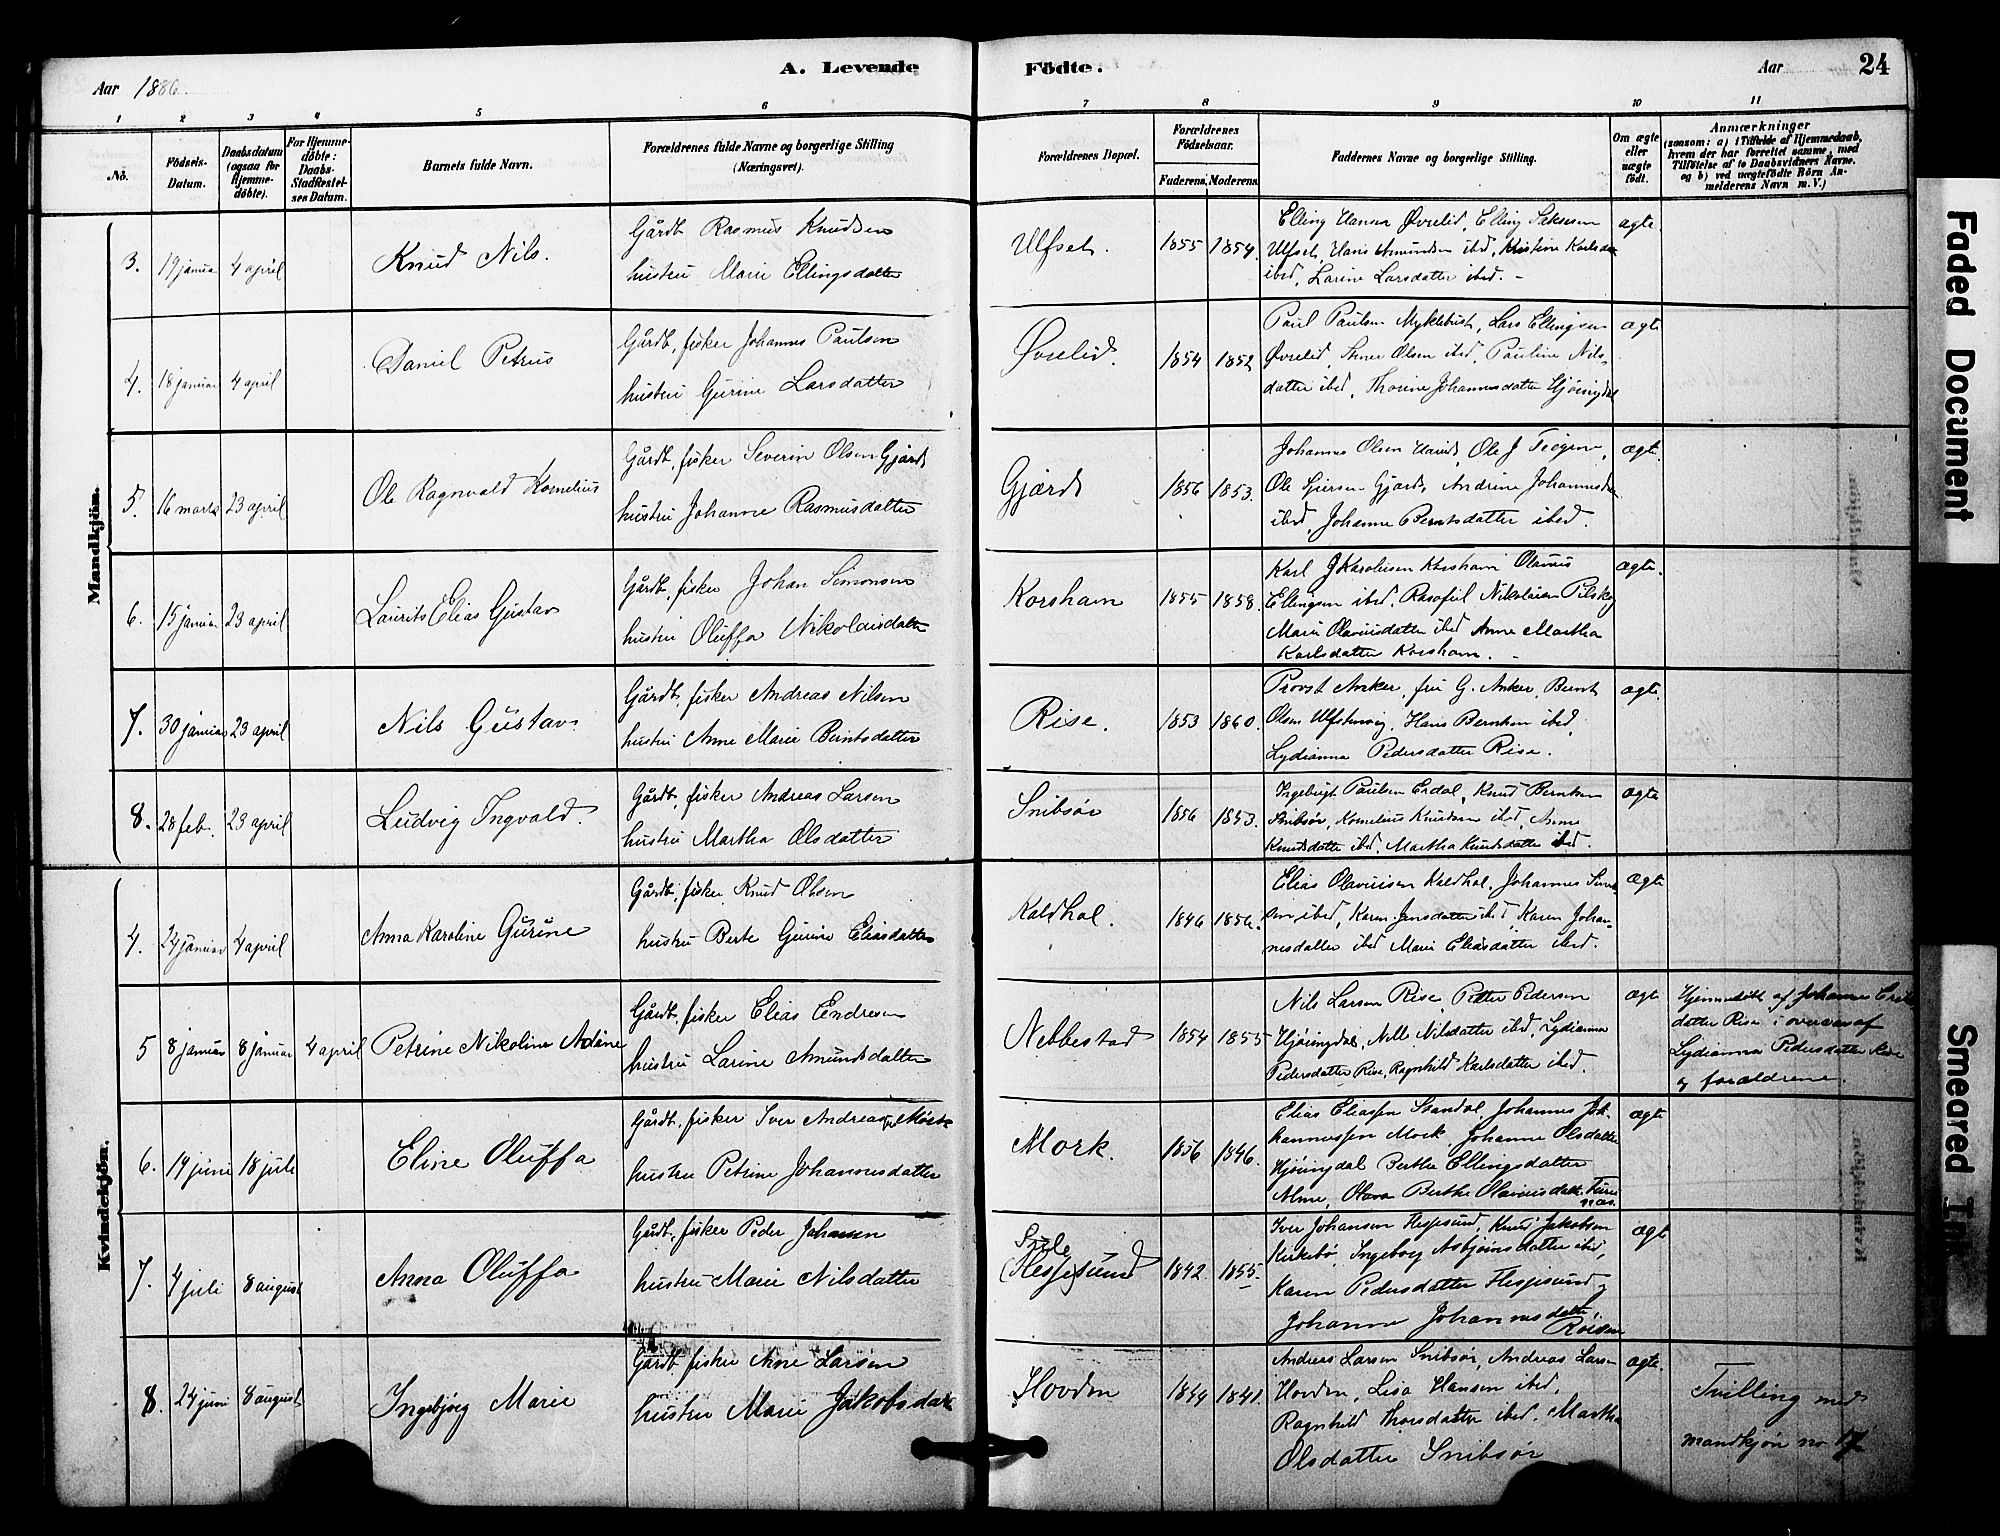 Aar 1886
A. Levende
Födte.
Aar
24
1 2 3 4 5 6 7 8 9 10 11
No.
Födsels-Datum.
Daabsdatum (ogsaa for Hjemme-döbte).
For Hjemme-döbte: Daabs-Stadfæstel-ses Datum.
Barnets fulde Navn.
Forældrenes fulde Navne og borgerlige Stilling (Næringsvei).
Forældrenes Bopæl.
Forældrenes Födselsaar.
Faderens. Moderens.
Faddernes Navne og borgerlige Stilling.
Om ægte eller uægte födt.
Anmærkninger
(saasom: a) i Tilfælde af Hjemmedaab, hvem der har forrettet samme, med Tilföielse af to Daabsvidners Navne, og b) ved uægtefödte Börn An-melderens Navn m. V.)
Mandkjön.
3. 19 januar 4 april Knud Nils.
Gårdb. Rasmus Knudsen
hustru Marie Ellingsdatter
Ulfset. 1855 1854.
Elling Hansen Øvrelid, Elling Saksesen
Ulfset, Hans Amundsen ibid, Kristine Karlsdtr
ibid, Larine Larsdatter ibid. -
ægte.
4. 18 januar 4 april Daniel Petrus
Gårdb. fisker Johannes Paulsen
hustru Gurine Larsdatter
Øvrelid. 1854 1852
Paul Paulsen Myklebust, Lars Ellingsen
Øvrelid, Olsen ibid, Pauline Nils-
datter ibid, Thorine Johannesdatter Hjöringdal
ægte
5. 16 marts 23 april Ole Ragnvald Kornelius
Gårdb. fisker Severin Olsen Gjærde
hustru Johanne Rasmusdatter
Gjærde 1856 1853.
Johannes Olsen Ole J
Ole Sjursen Gjærde, Andrine Johannesdtr
ibid, Johanne Berntsdatter ibid.
ægte.
6. 15 januar 23 april Laurits Elias Gustav
Gårdb. fisker Johan Simonsen
hustru Oluffa Nikolaisdatter
Korsham 1855 1858.
Karl J Karolusen Korsham Olavus
Ellingsen ibid, Nikolaisen Pilskog
Marie Olavusdatter ibid Anne Martha
Karlsdatter Korsham. -
ægte.
7. 30 januar 23 april Nils Gustav.
Gårdb. fisker Andreas Nilsen
hustru Anne Marie Berntsdatter
Rise. 1853 1860.
Provst Anker, fru G. Anker, Bernt
Olsen Ulfstenvig, Hans Berntsen ibid,
Lydianna Pedersdatter Rise.
ægte
8. 28 feb. 23 april Ludvig Ingvald.
Gårdb. fisker Andreas Larsen
hustru Martha Olsdatter
Snibsör 1856 1853.
Ingebrigt Paulsen Eidal, Knud Berntsen
Snibsör, Kornelius Knudsen ibid, Anne
Knudsdatter ibid, Martha Knudsdatter ibid.
ægte
Kvindekjön.
4. 24 januar 4 april Anna Karoline Gurine
Gårdb. fisker Knud Olsen
hustru Berte Gurine Eliasdatter
Kaldhol. 1846 1856.
Elias Olavusen Kaldhol, Johannes
sen ibid, Karen Jensdatter ibid, Karen Johan-
nesdatter ibid Marie Eliasdatter ibid.
ægte
5 8 januar 8 januar 4 april Petrine Nikoline Adine
Gårdb. fisker Elias Endresen
hustru Larine Amundsdatter
Nebbestad 1854 1855
Nils Larsen Rise, Petter Pedersen
Hjöringdal, Nille Nilsdatter ibid, Lydianna
Pedersdatter Rise, Ragnhild Karlsdatter ibid.
ægte
Hjemmedöbt af Johanne
datter Rise i overvær af
Lydianna Pedersdatter Rise
og forældrene.
6. 19 juni 18 juli Eline Oluffa
Gårdb. fisker Iver Andreas
hustru Petrine Johannesdatter
Mork. 1856 1846.
Elias Eliassen Standal, Johannes Jo-
hannessen Mork, Johanne Olsdatter
Hjöringdal Berthe Ellingsdatter
Alme, Olava Berthe Olavusdatter Furenæs.
ægte
7. 4 juli 8 august Anna Oluffa
Gårdb. fisker Peder Johansen
hustru Marie Nilsdatter
Sule
(Flesjesund) 1842. 1855.
Iver Johansen Flesjesund, Knud Jakobsen
Kirkebö, Ingeborg Asbjörnsdatter ibid,
Karen Pedersdatter Flesjesund,
Johanne Johannesdatter
ægte
8. 24 juni 8 august Ingebjörg Marie
Gårdb. fisker Arne Larsen
hustru Marie Jakobsdatter
Hovden 1844 1841.
Andreas Larsen Snibsör, Andreas Larsen
Hovden, Lisa Hansen ibid,
Ragnhild Thorsdatter ibid. Martha
Olsdatter Snibsör
ægte.
Tvilling med
mandkjön no 17
Faded Document
Smeared Ink